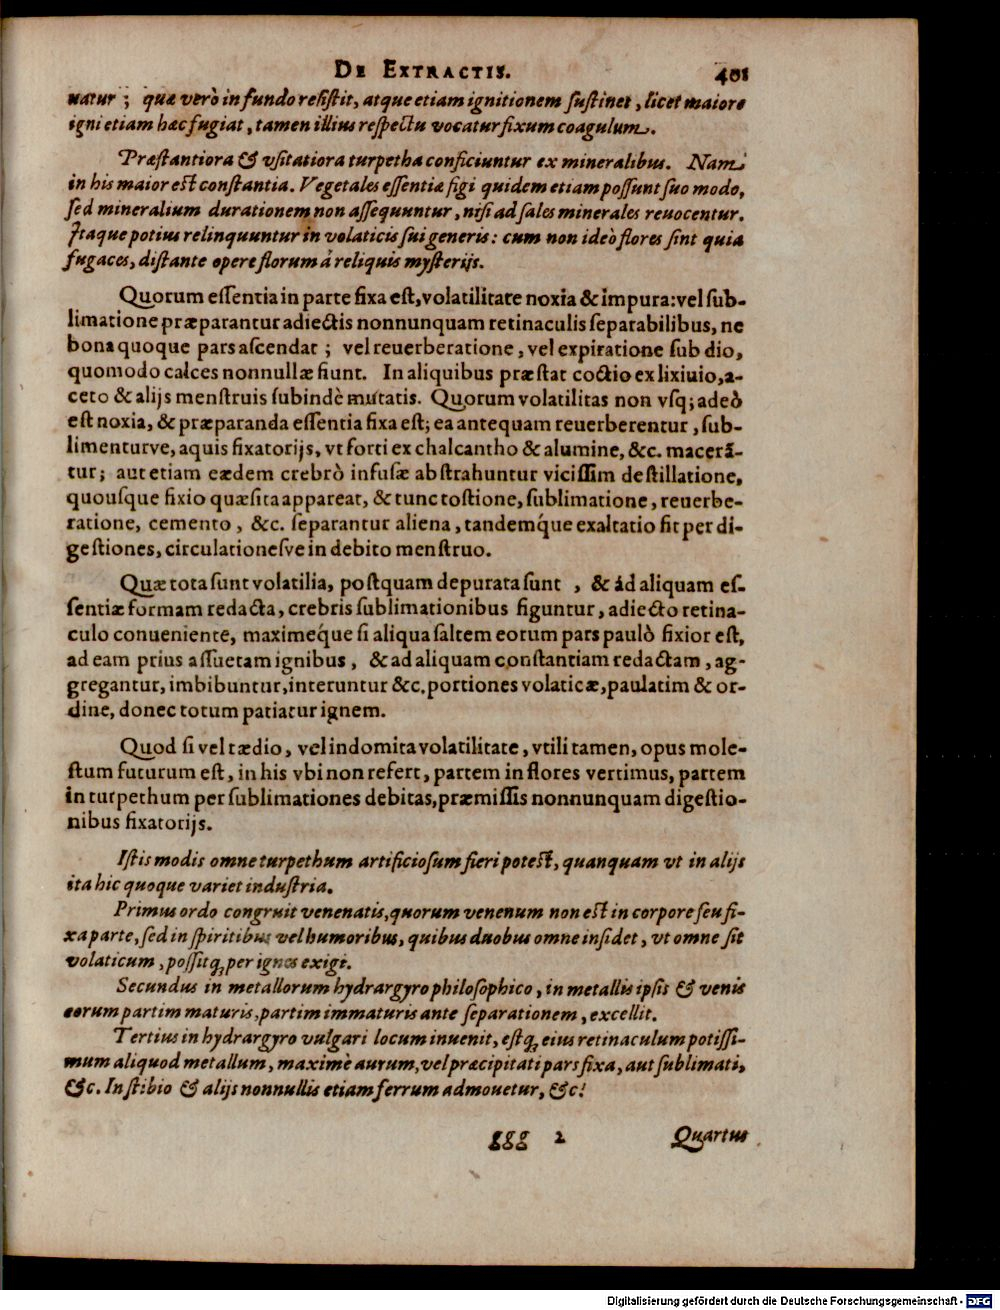 DE EXTRACTIS. 401
natur ; quæ verò in fundo resistit, atque etiam ignitionem sustinet, licet maiore
igni etiam hæc fugiat, tamen illius respectu vocatur fixum coagulum.
Præstantiora & vsitatiora turpetha conficiuntur ex mineralibus. Nam
in his maior est constantia. Vegetales essentiæ figi quidem etiam possunt suo modo,
sed mineralium durationem non assequuntur, nisi ad sales minerales reuocentur.
Itaque potius relinquuntur in volaticis sui generis: cum non ideò flores sint quia
fugaces, distante opere florum á reliquis mysterijs.
Quorum essentia in parte fixa est, volatilitate noxia & impura: vel sub-
limatione præparantur adiectis nonnunquam retinaculis separabilibus, ne
bona quoque pars ascendat ; vel reuerberatione, vel expiratione sub dio,
quomodo calces nonnullæ fiunt. In aliquibus præstat coctio ex lixiuio, a-
ceto & alijs menstruis subindè mutatis. Quorum volatilitas non vsq; adeò
est noxia, & præparanda essentia fixa est; ea antequam reuerberentur, sub-
limenturve, aquis fixatorijs, vt forti ex chalcantho & alumine, &c. macerã-
tur; aut etiam eædem crebrò infusæ abstrahuntur vicissim destillatione,
quousque fixio quæsita appareat, & tunc tostione, sublimatione, reuerbe-
ratione, cemento, &c. separantur aliena, tandemq́ue exaltatio fit per di-
gestiones, circulationesve in debito menstruo.
Quæ tota sunt volatilia, postquam depurata sunt , & ád aliquam es-
sentiæ formam redacta, crebris sublimationibus figuntur, adiecto retina-
culo conueniente, maximeq́ue si aliqua saltem eorum pars paulò fixior est,
ad eam prius assuetam ignibus, & ad aliquam constantiam redactam, ag-
gregantur, imbibuntur, interuntur &c. portiones volaticæ, paulatim & or-
dine, donec totum patiatur ignem.
Quod si vel tædio, vel indomita volatilitate, vtili tamen, opus mole-
stum futurum est, in his vbi non refert, partem in flores vertimus, partem
in turpethum per sublimationes debitas, præmissis nonnunquam digestio-
nibus fixatorijs.
Istis modis omne turpethum artificiosum fieri potest, quanquam vt in alijs
ita hic quoque variet industria.
Primus ordo congruit venenatis, quorum venenum non est in corpore seu fi-
xa parte, sed in spiritibus vel humoribus, quibus duobus omne insidet, vt omne sit
volaticum, possitq; per ignes exigi.
Secundus in metallorum hydrargyro philosophico, in metallis ipsis & venis
eorum partim maturis, partim immaturis ante separationem, excellit.
Tertius in hydrargyro vulgari locum inuenit, estq; eius retinaculum potissi-
mum aliquod metallum, maximè aurum, vel præcipitati pars fixa, aut sublimati,
&c. In stibio & alijs nonnullis etiam ferrum admouetur, &c.
ggg 2 Quartus
Digitalisierung gefördert durch die Deutsche Forschungsgemeinschaft - DFG